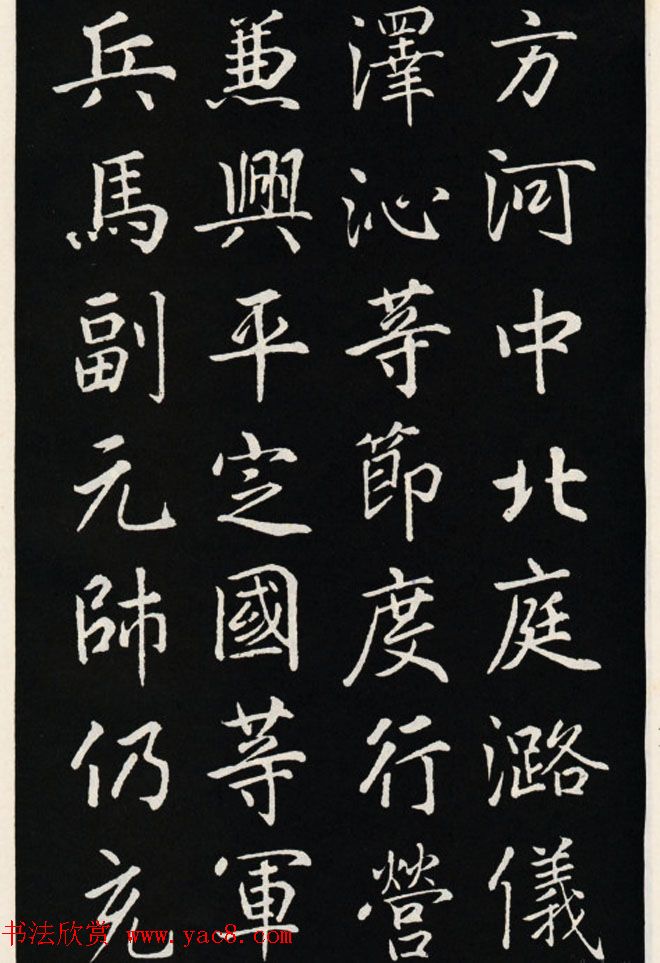 方河中北庭潞儀
澤沁等節度行營
兼興平定國等軍
兵馬副元帥仍充
书法欣赏 www.yac8.com